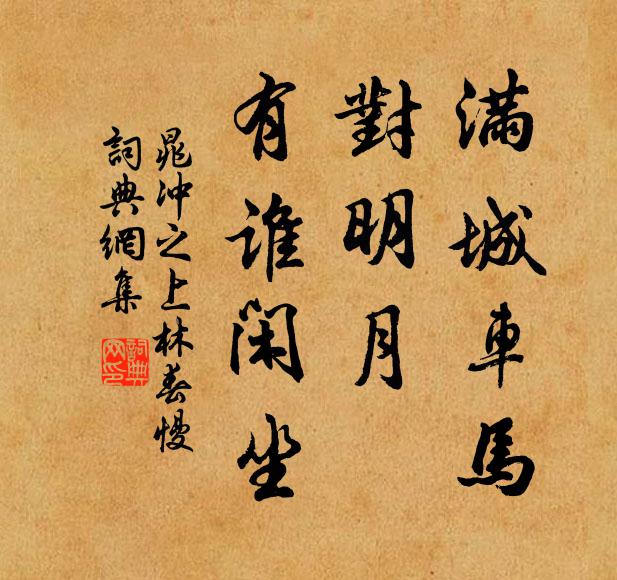 滿城車馬
對明月
有誰閑坐
晁冲之上林春慢
詞典網集
詞典
网印